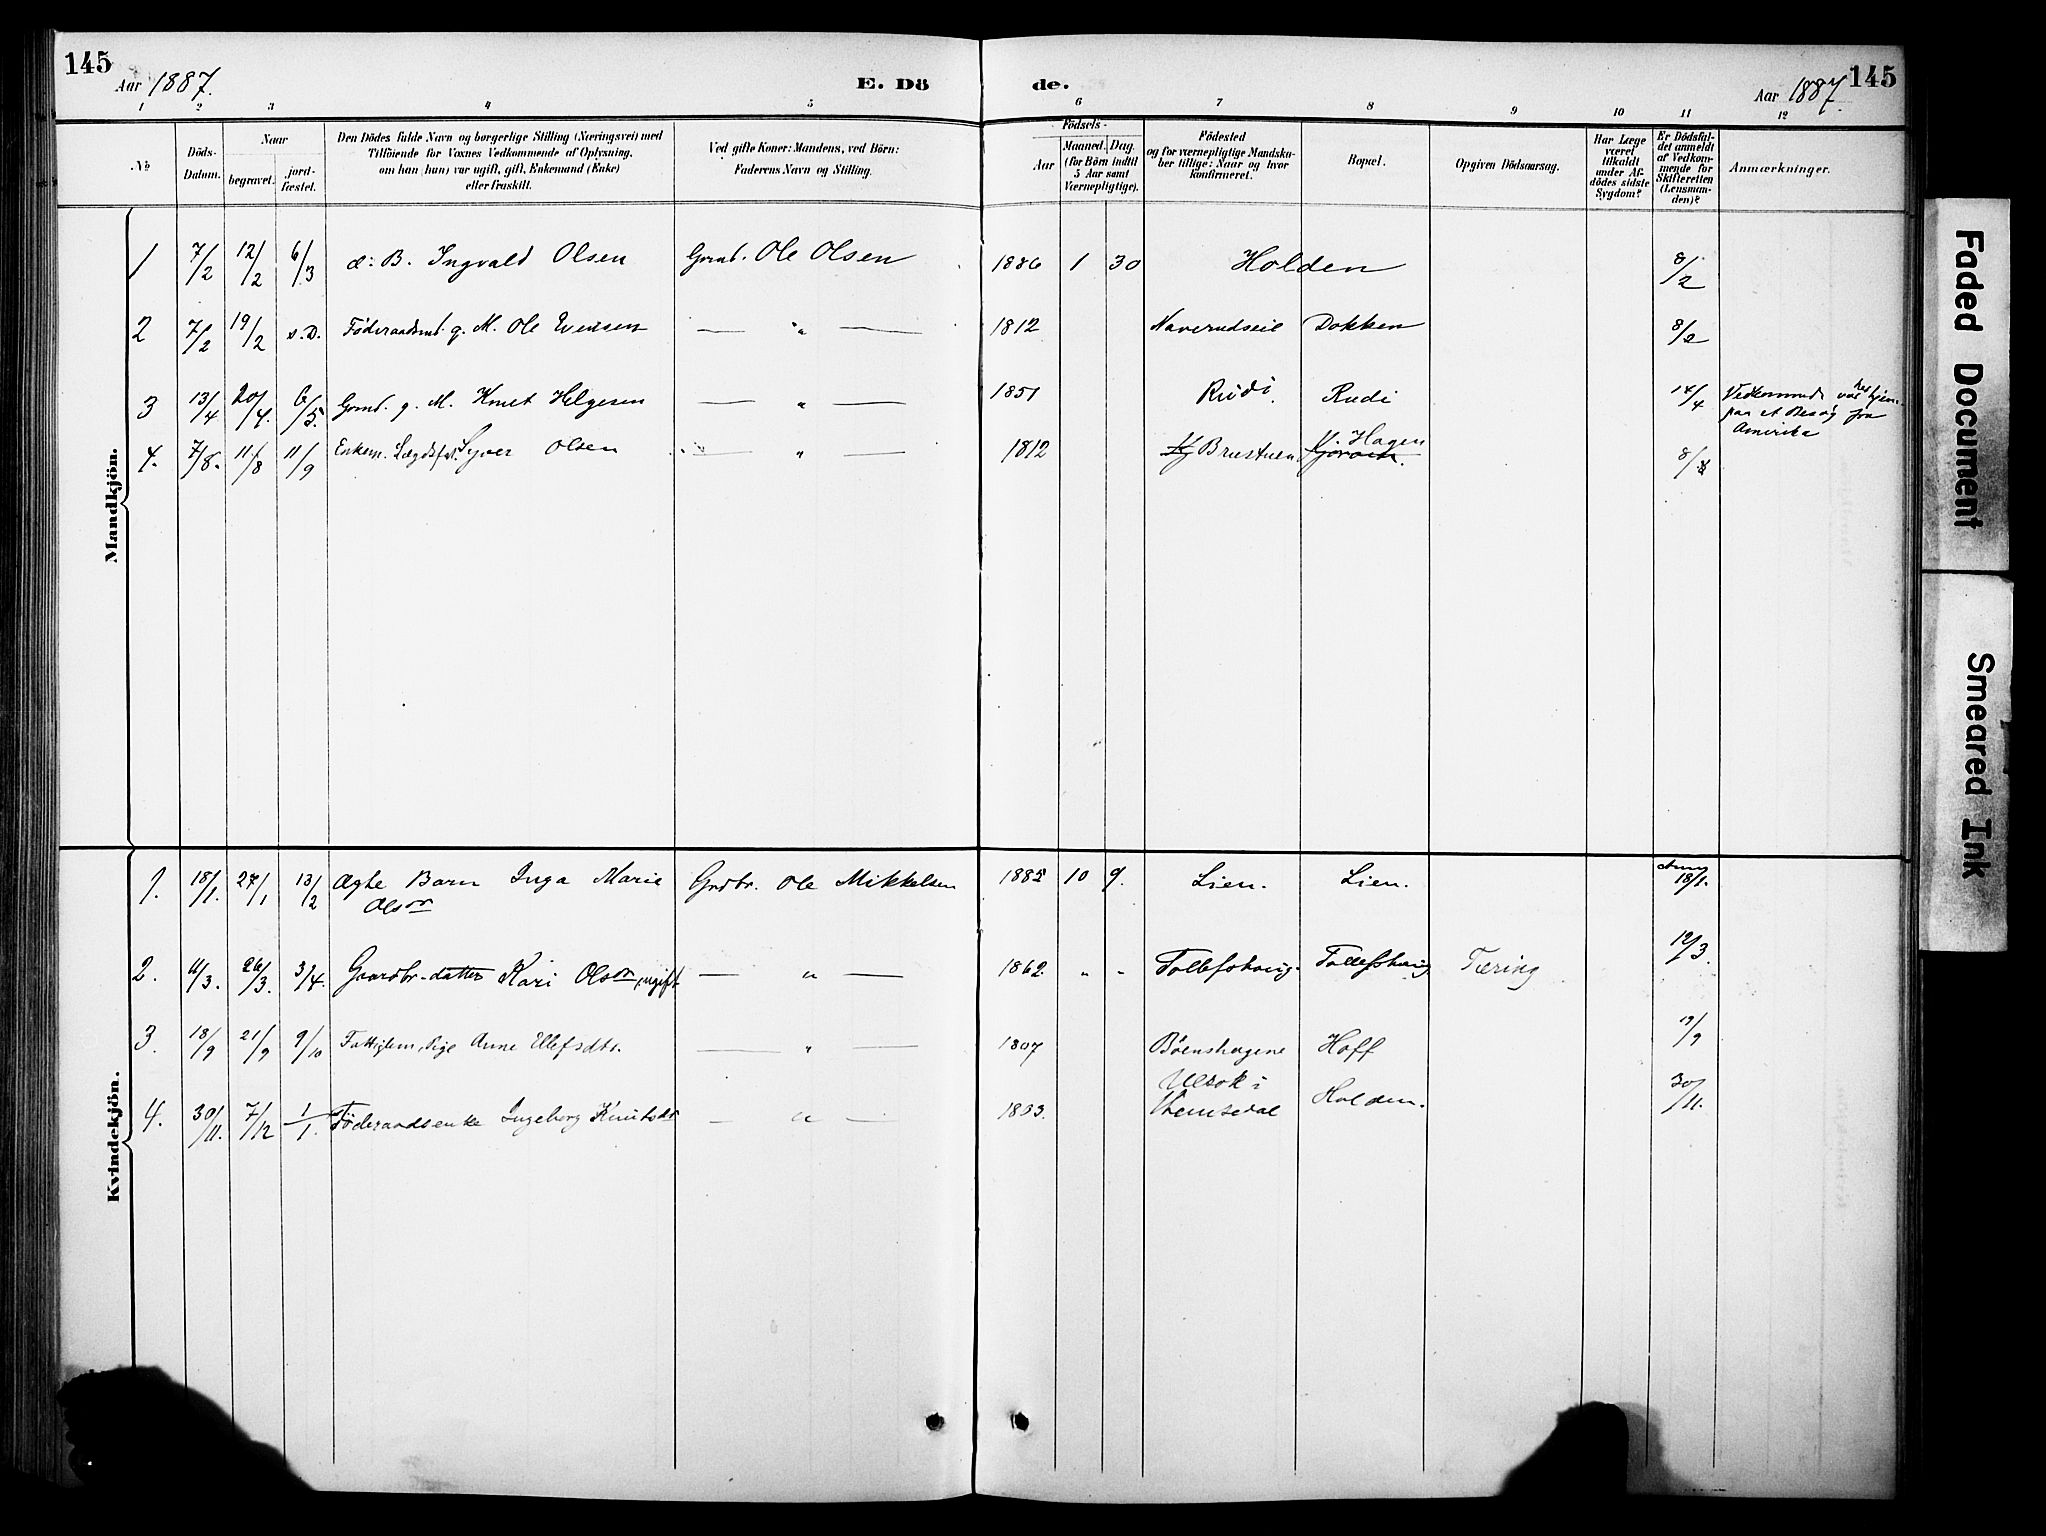 145
Aar 1887.
E. Dö
de.
Aar 1887.
145
1 2 3 4 5 6 7 8 9 10 11 12
No.
Döds-Datum.
Naar
begravet.
jord-fæstet.
Den Dödes fulde Navn og borgerlige Stilling (Næringsvei) med
Tilföiende for Voxnes Vedkommende af Oplysning,
om han (hun) var ugift, gift, Enkemand (Enke)
eller fraskilt.
Ved gifte Koner: Mandens, ved Börn:
Faderens Navn og Stilling.
Födsels-
Aar
Maaned. Dag.
(for Börn indtil
5 Aar samt
Værnepligtige).
Födested
og for værnepligtige Mandska-
ber tillige: Naar og hvor
konfirmeret.
Bopæl.
Opgiven Dödsaarsag.
Har Læge
været
tilkaldt
under Af-
dödes sidste
Sygdom?
Er Dödsfal-
det anmeldt
af Vedkom-
mende for
Skifteretten
(Lensman-
den)?
Anmærkninger.
Mandkjön.
1 7/2 12/2 6/3 æ: B. Ingvald Olsen Grmd. Ole Olsen 1886 1 30 Holden 8/2
2 7/2 19/2 s.D. Føderaadsmd. g. M. Ole Evensen — " — 1812 Naverudseie Dokken 8/2
3 13/4 20/4. 6/5. Grmd. g. M. Knut Helgesen — " — 1851 Rudi. Rudi 14/4 Vedkommende var her hjem-
paa et Besøg fra
Amerika
4. 7/8. 11/8 11/9 Enkem. Lægdsf. Syver Olsen — " — 1812 Brustuen N. Hagen 8/8
Kvindekjön.
1. 18/1. 27/1 13/2 Ægte Barn Inga Marie Grdbr. Ole Mikkelsen 1885 10 9. Lien. Lien. 18/1.
Olsdr
2. 11/3. 26/3. 3/4. Gaardbr. datter Kari Olsdr, ugift — " — 1862 " " Tollefshaug. Tollefshaug Tæring 12/3.
3. 18/9 21/9 9/10 Fattiglem, Pige Anne Ellefsdtr. — " — 1807 Bøenshagene Hoff 19/9
4. 30/11. 7/12 1/1. Føderaadsenke Ingeborg Knutsdr — " — 1803. Ulsok i
Hemsedal Holden. 30/11.
Faded Document
Smeared Ink